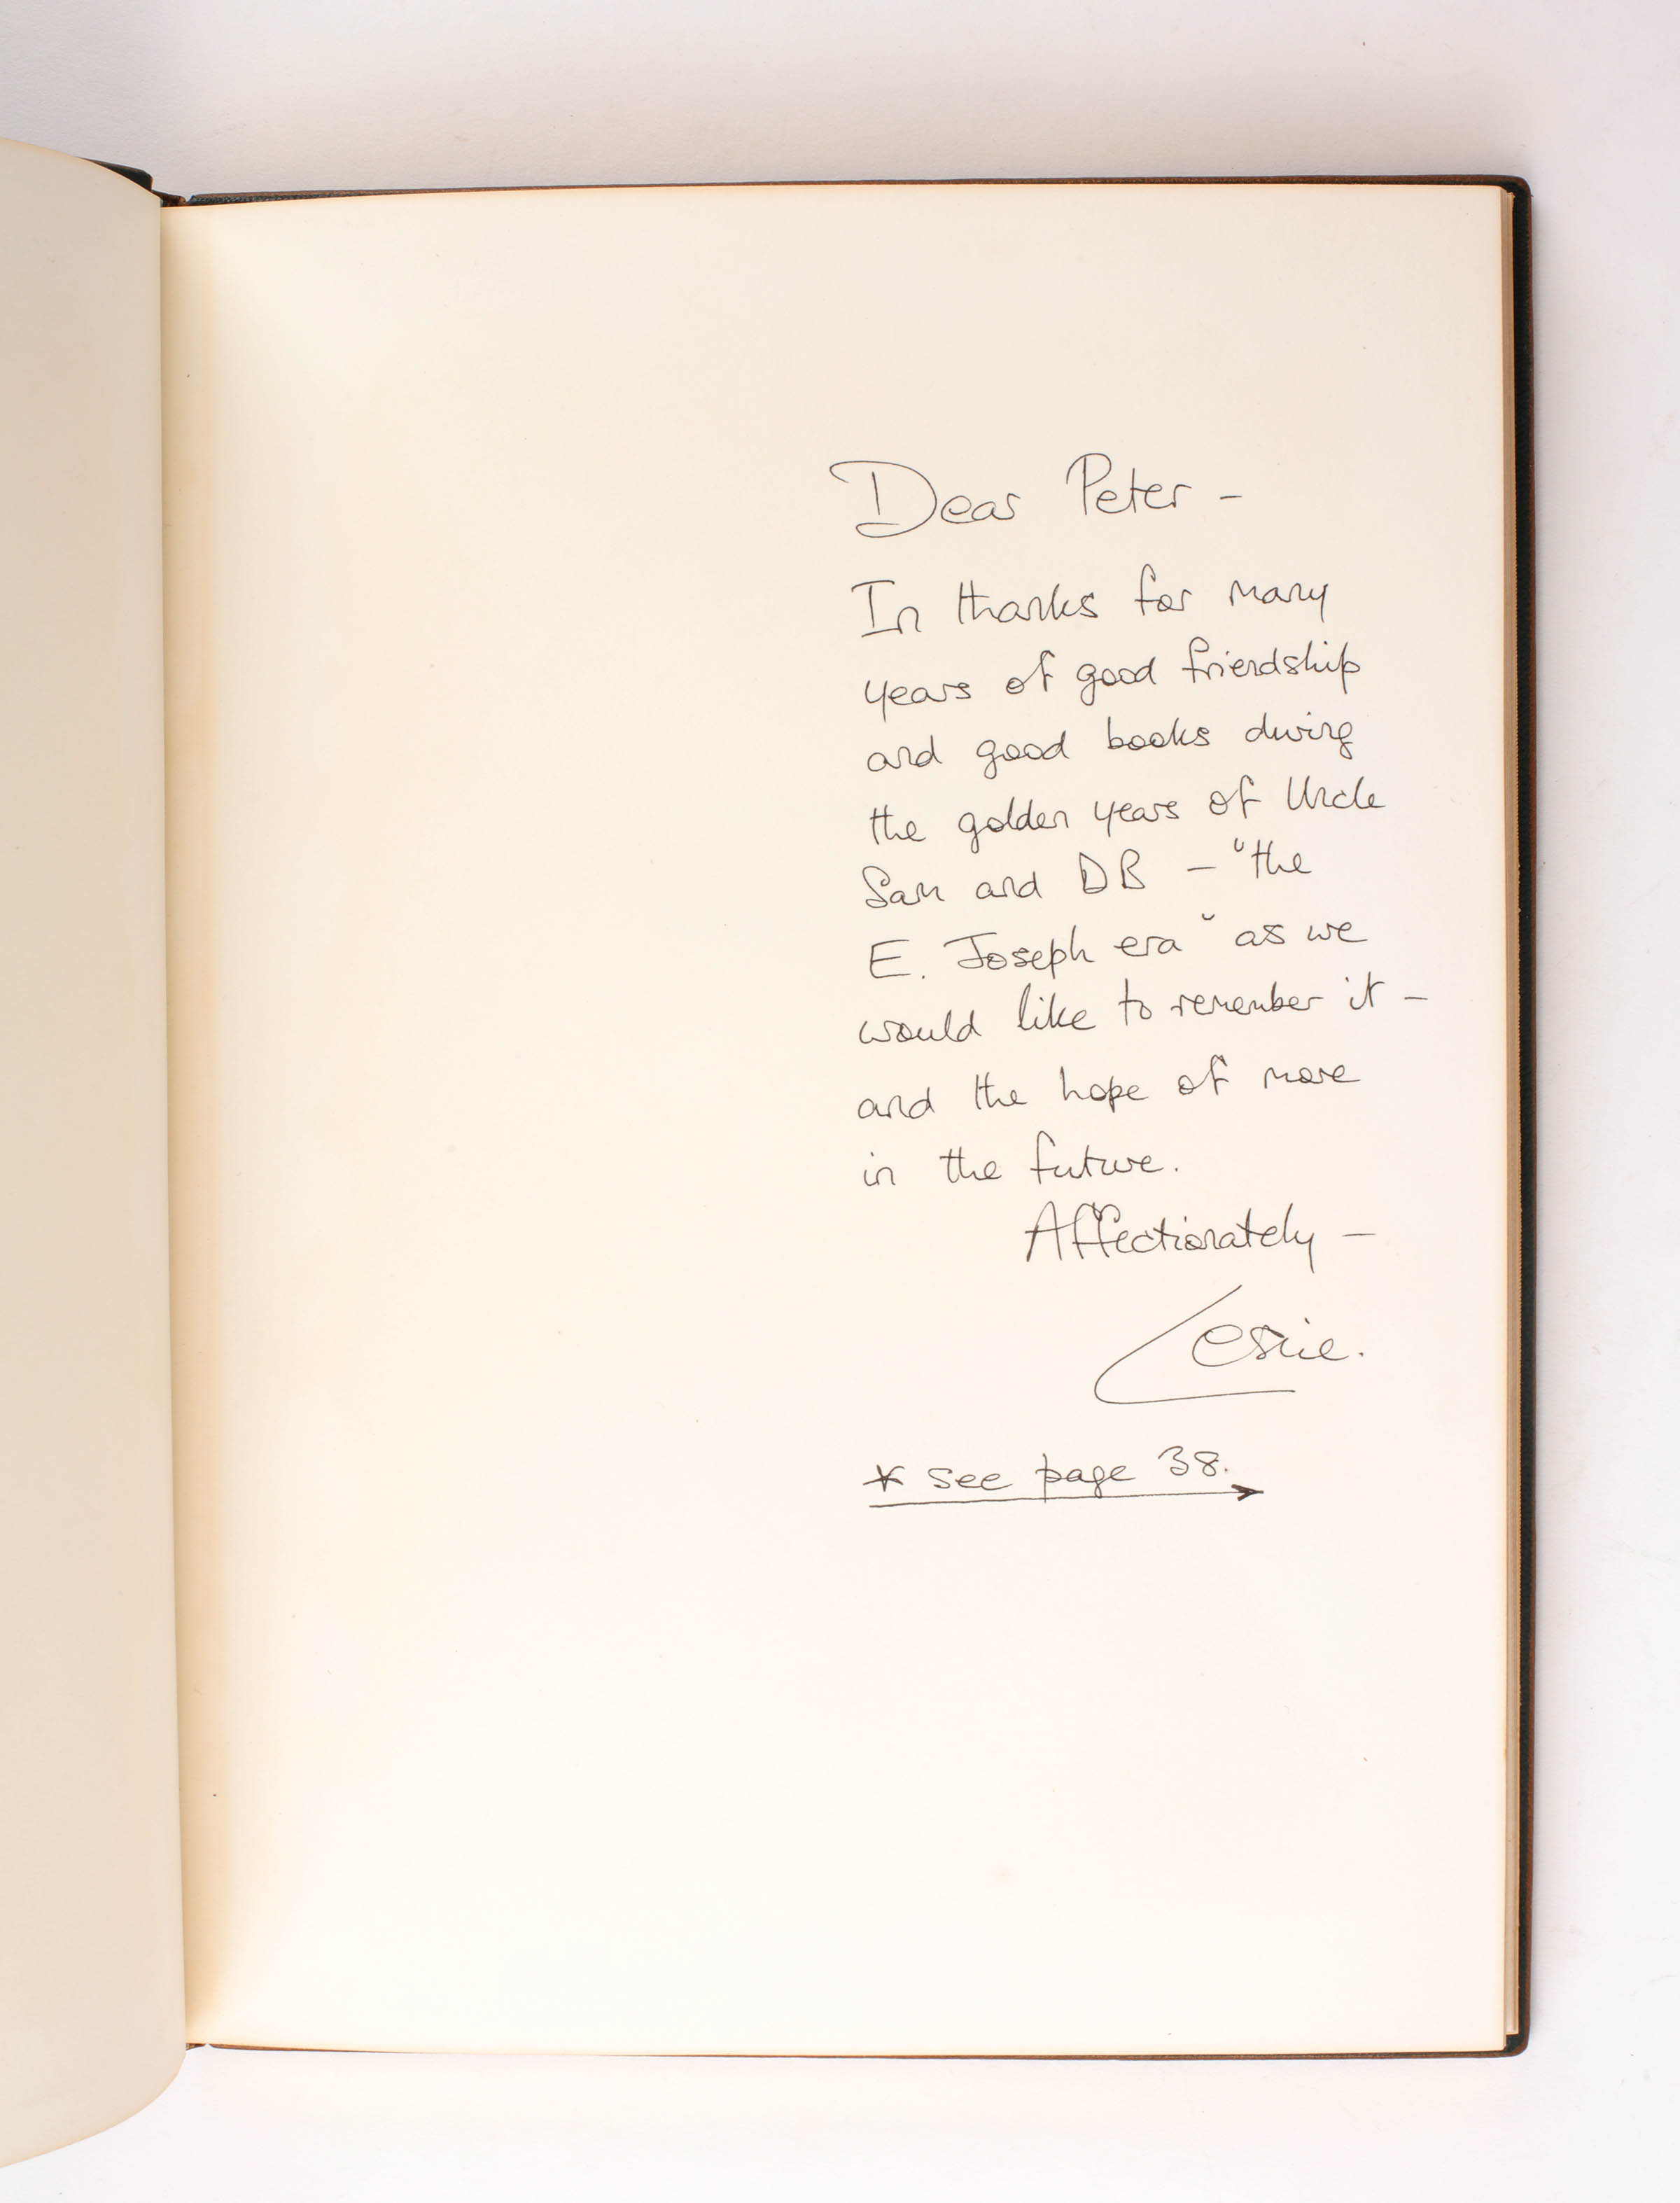 Dear Peter –
In thanks for many
years of good friendship
and good books during
the golden years of Uncle
Sam and DB – "the
E. Joseph era" as we
would like to remember it –
and the hope of more
in the future.
Affectionately –
Leslie.
* see page 38.